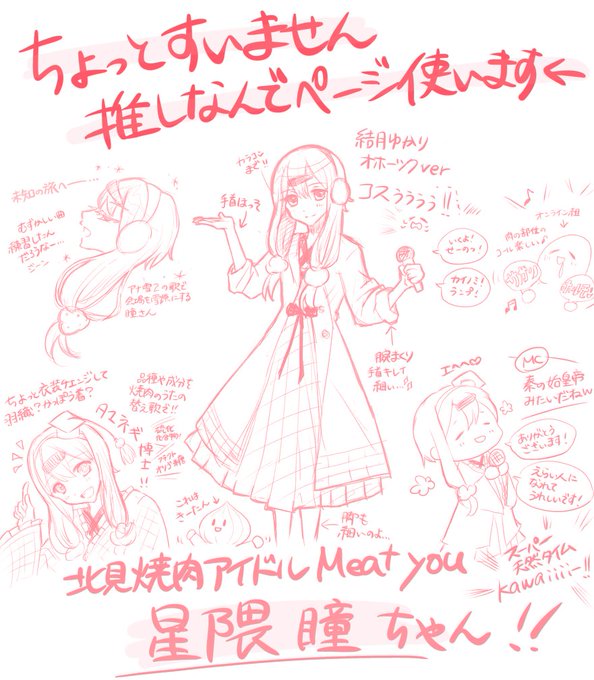 ちょっとすいません
推しなんでページ使います←
結月ゆかり
オホーツクver
コスうううう!!
カラコン
まで!!
手首ほっそ
未知の旅へ――…
むずかしい曲
練習したん
だろうな…
ジーン
瞳さん
いくよ!
せーのっ!
カイノミ!
ランプ!
オンライン組
肉の部位の
コール楽しい♪
腕まくり
手首キレイ
細い…!!
ちょっと衣装チェンジして
羽織?かっぽう着?
品種や成分を
焼肉のうたの
替え歌で!!
タマネギ
博士!!
これは
きーたん
脚も
細いのよ…
MC
秦の始皇帝
みたいだねw
ありがとう
ございます!
えらい人に
なれて
うれしいです!
スーパー
天然タイム
kawaiiii―!!
北見焼肉アイドル Meat you
星隈 瞳 ちゃん!!